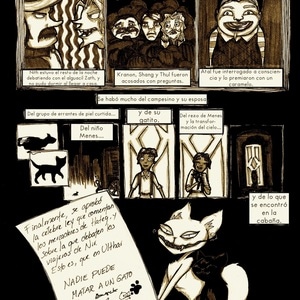 Nith estuvo el resto de la noche
debatiendo con el alguacil Zath, y
no pudo dormir al llegar a casa.
Kranon, Shang y Thul fueron
acosados con preguntas.
Atal fue interrogado a conscien-
cia y lo premiaron con un
caramelo.
Se habló mucho del campesino y su esposa
Del grupo de errantes de piel curtida...
y de su
gatito.
Del niño
Menes...
Del rezo de Menes
y la transfor-
mación del cielo...
y de lo
que se
encontró
en la
cabaña.
Finalmente, se aprobó
la célebre ley que comentan
los mercaderes de Hatheg y
sobre la que debaten los
viajeros de Nir.
Esto es, que en Ulthar
NADIE PUEDE
MATAR A UN GATO